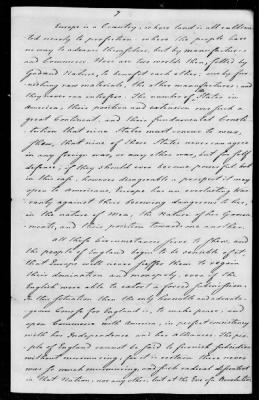 7
Europe is a Country, where land is all cultiva-
ted nearly to perfection, where the people have
no way to advance themselves, but by manufactures
and Commerce. Here are two worlds then, fitted by
God and Nature, to benefit each other, one by fur-
nishing raw materials, the other manufactures, and
they never can interfere. The number of States in
America, their position and extension over such a
great Continent, and their fundamental Consti-
tution that nine States must concur to war,
shew, that nine of these States never can agree
in any foreign war, or any other war, but for self
defence, if they should ever become powerful. But
in this case, however disagreable a prospect it may
open to Americans, Europe has an everlasting War-
ranty against their becoming dangerous to her,
in the nature of Men, the Nature of her Govern-
ments, and their position towards one another.
All these Circumstances serve to shew, and
the people of England begin to be sensible of it,
that Europe will never suffer them to regain
their domination and monopoly, even if the
English were able to extort a forced submission.
In this situation then the only honorable and advanta-
geous Course for England is, to make peace, and
open Commerce with America, in perfect consistency
with her Independence and her alliances. The peo-
ple of England cannot be said to furnish subsidies
without murmuring, for it is certain there never
was so much murmuring, and such radical discontent
in that Nation, nor any other, but at the Eve of a Revolution